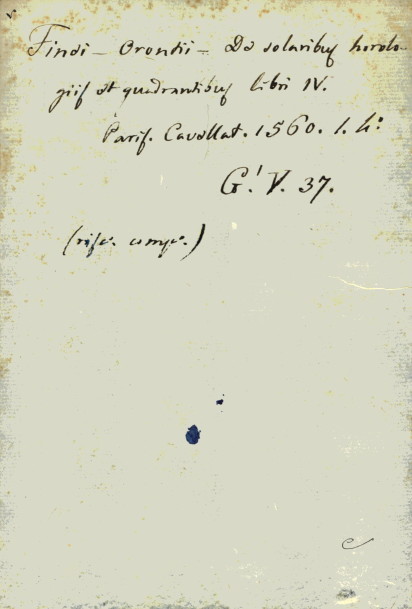 Finei - Orontii - De solaribus horolo-
giis et quadrantibus libri IV.
Paris. Cavellat. 1560. 1. 4°
G! V. 37.